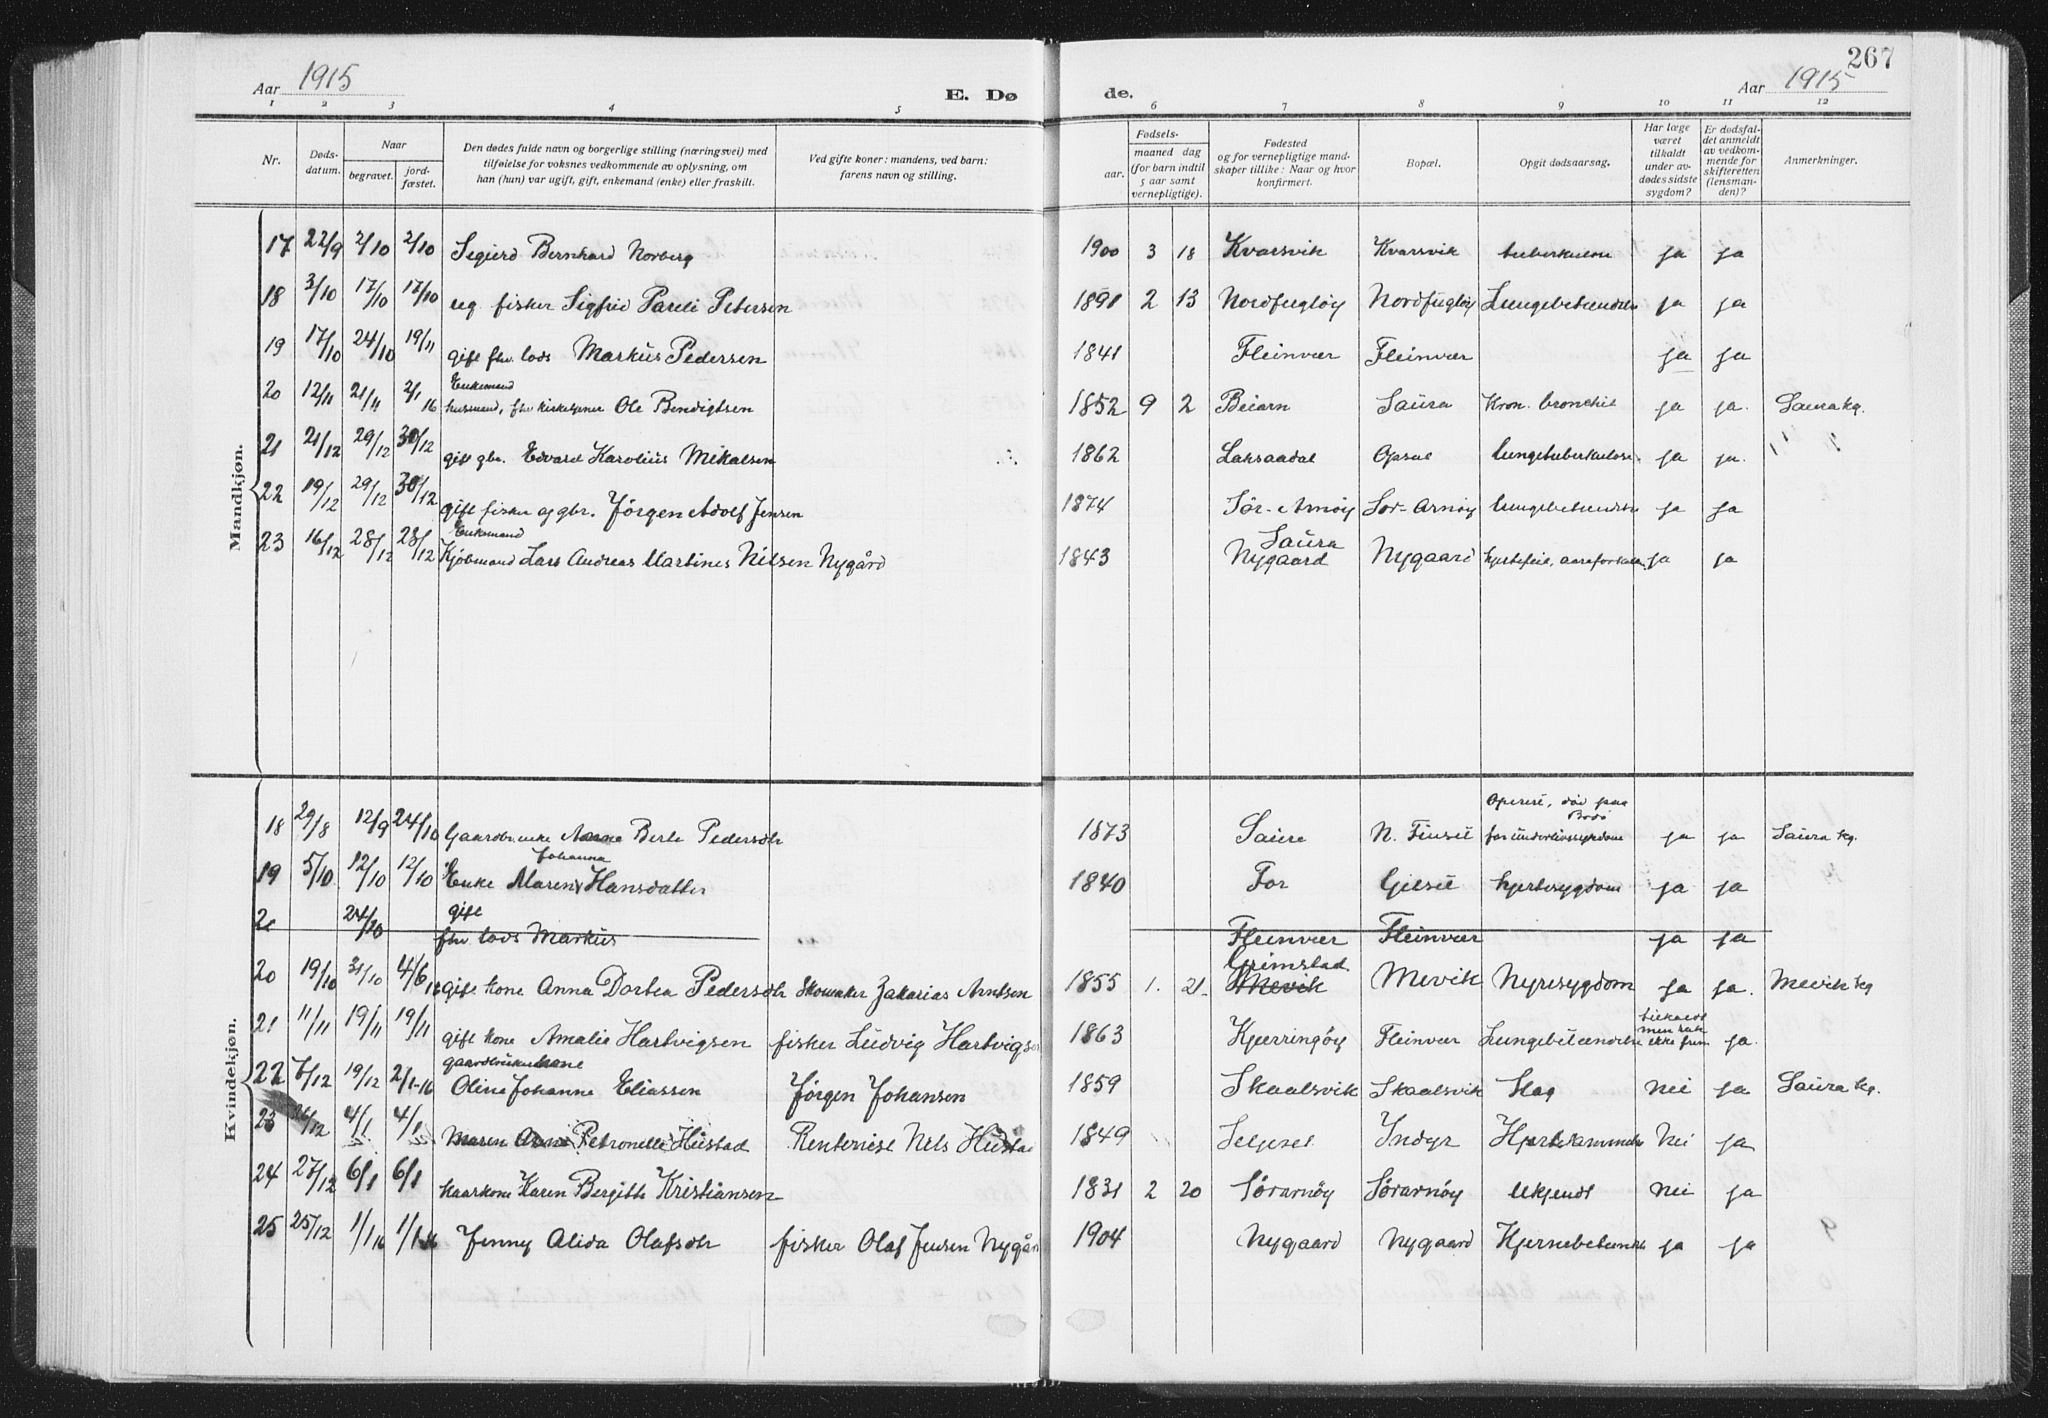 267
Aar 1915
E. Døde.
Aar 1915
1 2 3 4 5 6 7 8 9 10 11 12
Nr.
Døds-
datum.
Naar
begravet.
jord-
fæstet.
Den dødes fulde navn og borgerlige stilling (næringsvei) med
tilføielse for voksnes vedkommende av oplysning, om
han (hun) var ugift, gift, enkemand (enke) eller fraskilt.
Ved gifte koner: mandens, ved barn:
farens navn og stilling.
Fødsels-
aar.
maaned dag
(for barn indtil
5 aar samt
vernepligtige).
Fødested
og for vernepligtige mand-
skaper tillike: Naar og hvor
konfirmert.
Bopæl.
Opgit dødsaarsag.
Har læge
været
tilkaldt
under av-
dødes sidste
sygdom?
Er dødsfal-
det anmeldt
av vedkom-
mende for
skifteretten
(lensman-
den)?
Anmerkninger.
Mandkjøn.
17 22/9 2/10 2/10 Sigurd Bernhard Norberg 1900 3 18 Kvarsvik Kvarsvik tuberkulose ja ja
18 3/10 17/10 17/10 ug. fisker Sigfrid Pareli Petersen 1891 2 13 Nordfugløy Nordfugløy Lungebetændelse ja ja
19 17/10 24/10 19/11 gift fhv. lods Markus Pedersen 1841 Fleinvær Fleinvær ja ja
Enkemand
20 12/11 21/11 2/1 16 husmand, fhv kirketjener Ole Bendigtsen 1852 9 2 Beiarn Saura Kron. bronchit ja ja. Saura kg.
21 21/12 29/12 30/12 gift gbr. Edvard Karolius Mikalsen 1862 Laksaadal Opsal lungetuberkulose ja ja. " "
22 19/12 29/12 30/12 gift fisker og gbr. Jørgen Adolf Jensen 1874 Sør-Arnøy Sør-Arnøy lungebetændelse ja ja
Enkemand Saura
23 16/12 28/12 28/12 Kjøbmand Lars Andreas Martines Nilsen Nygård 1843 Nygaard Nygaard hjertefeil, aareforkalk. ja ja
Kvindekjøn.
Operert, død paa
Bodø
18 29/8 12/9 24/10 Gaardbr.enke Anna Berte Pedersdtr 1873 Saura N. Finset for underlivssygdom ja ja Saura kg.
Johanna
19 5/10 12/10 12/10 Enke Maren Hansdatter 1840 For Gilset hjertesygdom ja ja
gift
20 24/10 fhv lods Markus Fleinvær Fleinvær ja ja
Grimstad
20 19/10 31/10 4/6 16 gift kone Anna Dortea Pedersdtr Skomaker Zakarias Arntsen 1855 1. 21. Mevik Mevik Nyresygdom ja ja. Mevik kg
tilkaldt
men rak
21 11/11 19/11 19/11 gift kone Amalie Hartvigsen fisker Ludvig Hartvigsen 1863 Kjerringøy Fleinvær Lungebetændelse ikke frem ja.
gaardbrukerkone
22 7/12 19/12 2/1-16 Oline Johanne Eliassen Jørgen Johansen 1859 Skaalsvik Skaalsvik Slag nei ja Saura kg.
23 26/12 4/1 4/1 Maren Anna Petronelle Hustad Renterist Nils Hustad 1849 Selset Indyr Hjertelammelse Nei ja
24 27/12 6/1 6/1 kaarkone Karen Bergitte Kristiansen 1831 2 20 Sørarnøy Sørarnøy ukjendt nei ja
25 25/12 1/1 16 1/1-16 Jenny Alida Olafsdtr fisker Olaf Jensen Nygård 1904 Nygaard Nygaard Hjernebetændelse ja ja